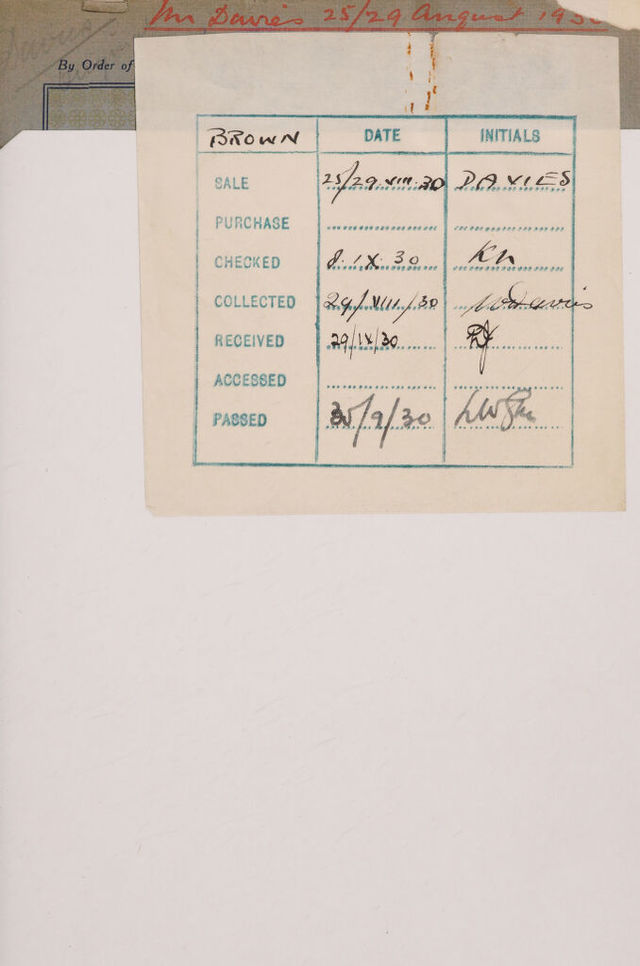 Mr Davies 25/29 August 193
Davies
By Order of
BROWN DATE INITIALS
SALE 25/29.VIII.30 DAVIES
PURCHASE
CHECKED 8.IX.30 KN
COLLECTED 29/VIII/30 Davies
RECEIVED 29/IX/30
ACCESSED
PASSED 30/9/30